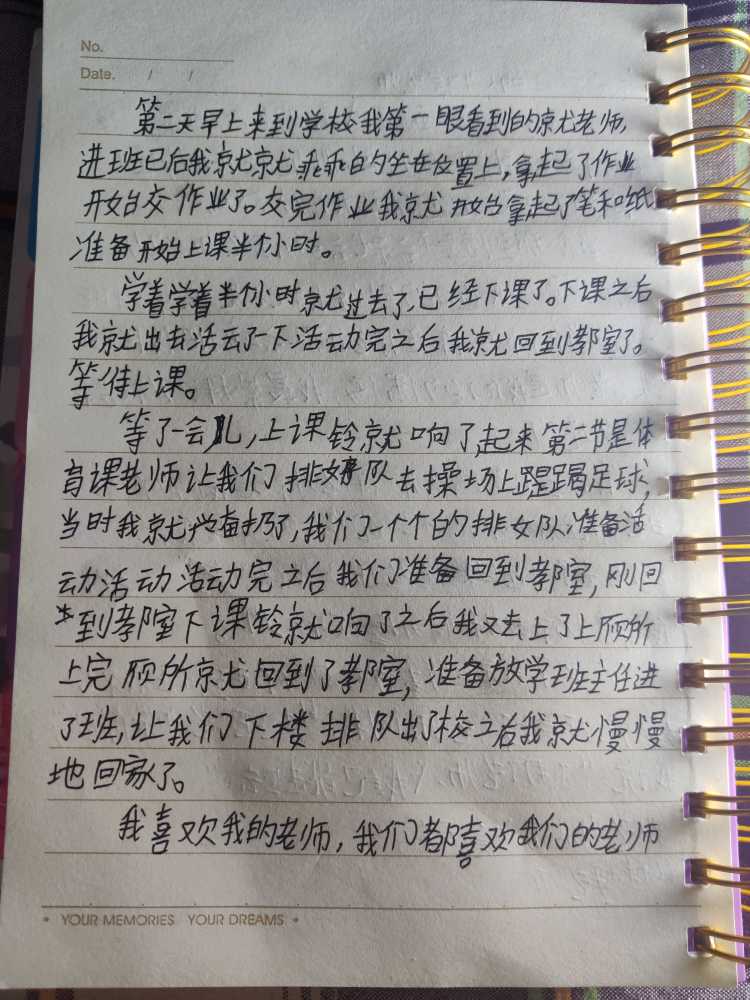 No.
Date. / /
第二天早上来到学校我第一眼看到的就老师,
进班已后我就就乖乖的坐在位置上,拿起了作业
开始交作业了。交完作业我就开始拿起了笔和纸
准备开始上课半小时。
学着学着半个小时就过去了,已经下课了。下课之后
我就出去活动了一下活动完之后我就回到教室了。
等待上课。
等了一会儿,上课铃就响了起来第二节是体
育课老师让我们排好队去操场上踢足球,
当时我就兴奋极了,我们一个个的排好队准备活
动活动活动完之后我们准备回到教室,刚回
到教室下课铃就响了之后我又去上了上厕所
上完厕所就回到了教室,准备放学班主任进
了班,让我们下楼排队出了校之后我就慢慢
地回家了。
我喜欢我的老师,我们都喜欢我们的老师
YOUR MEMORIES YOUR DREAMS